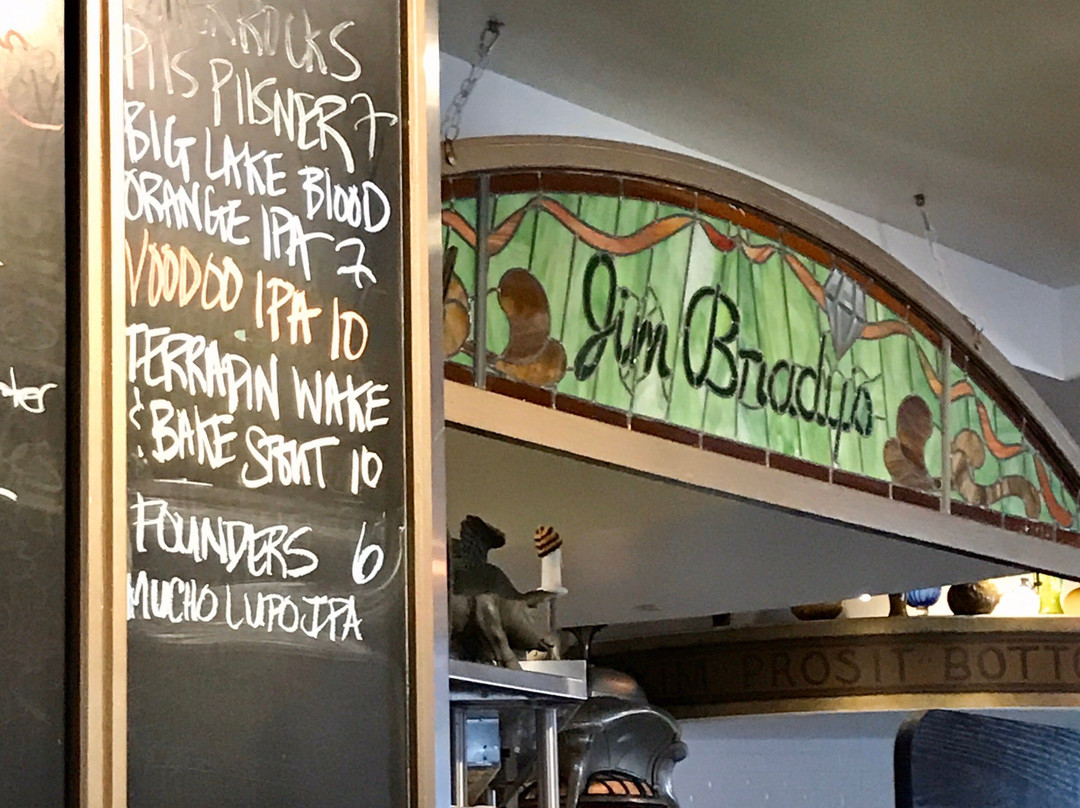 PILS PILSNER 7
BIG LAKE BLOOD
ORANGE IPA 7
VOODOO IPA 10
TERRAPIN WAKE
& BAKE STOUT 10
FOUNDERS 6
MUCHO LUPO IPA
Jim Bradys
PROSIT BOTTO